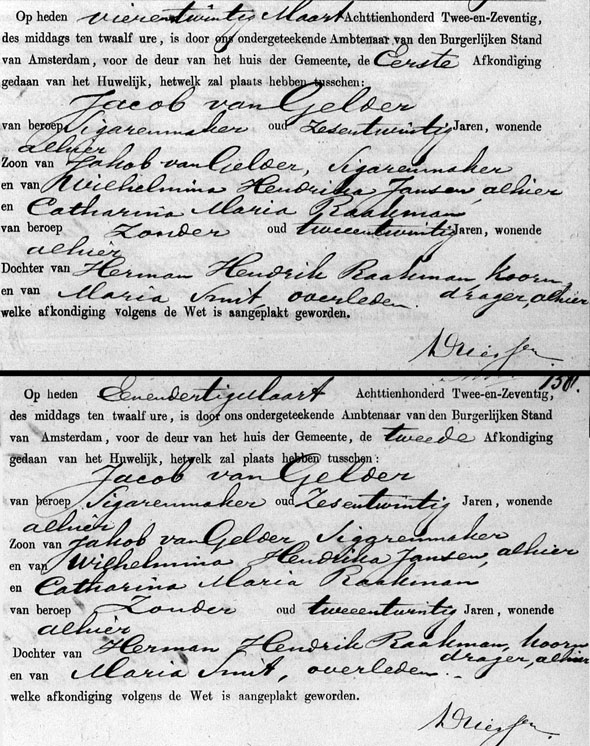 Op heden vierentwintig Maart Achttienhonderd Twee-en-Zeventig,
des middags ten twaalf ure, is door ons ondergeteekende Ambtenaar van den Burgerlijken Stand
van Amsterdam, voor de deur van het huis der Gemeente, de Eerste Afkondiging
gedaan van het Huwelijk, hetwelk zal plaats hebben tusschen:
Jacob van Gelder
van beroep Sigarenmaker oud Zesentwintig Jaren, wonende
alhier
Zoon van Jakob van Gelder, Sigarenmaker
en van Wilhelmina Hendrika Jansen, alhier
en Catharina Maria Raakman
van beroep Zonder oud tweeentwintig Jaren, wonende
alhier
Dochter van Herman Hendrik Raakman, koorn
en van Maria Smit, overleden. drager, alhier
welke afkondiging volgens de Wet is aangeplakt geworden.
Op heden Eenendertig Maart Achttienhonderd Twee-en-Zeventig,
des middags ten twaalf ure, is door ons ondergeteekende Ambtenaar van den Burgerlijken Stand
van Amsterdam, voor de deur van het huis der Gemeente, de tweede Afkondiging
gedaan van het Huwelijk, hetwelk zal plaats hebben tusschen:
Jacob van Gelder
van beroep Sigarenmaker oud Zesentwintig Jaren, wonende
alhier
Zoon van Jakob van Gelder Siggrenmaker
en van Wilhelmina Hendrika Jansen, alhier
en Catharina Maria Raakman
van beroep Zonder oud tweeentwintig Jaren, wonende
alhier
Dochter van Herman Hendrik Raakman, koorn
drager, alhier
en van Maria Smit, overleden.
welke afkondiging volgens de Wet is aangeplakt geworden.